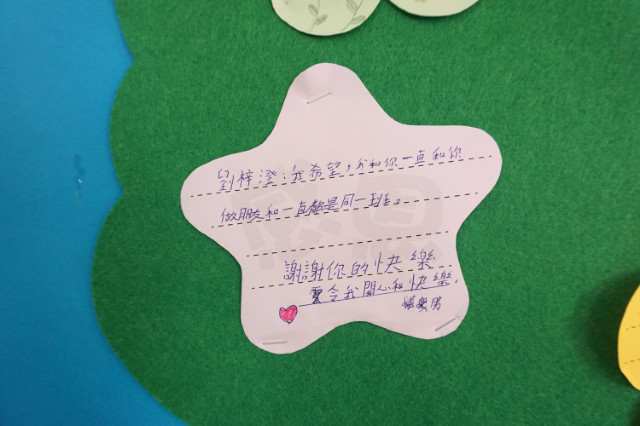 劉梓澄:我希望,我和你一直和你
做朋友和一直都是同一班。
謝謝你的快樂
令我開心和快樂.